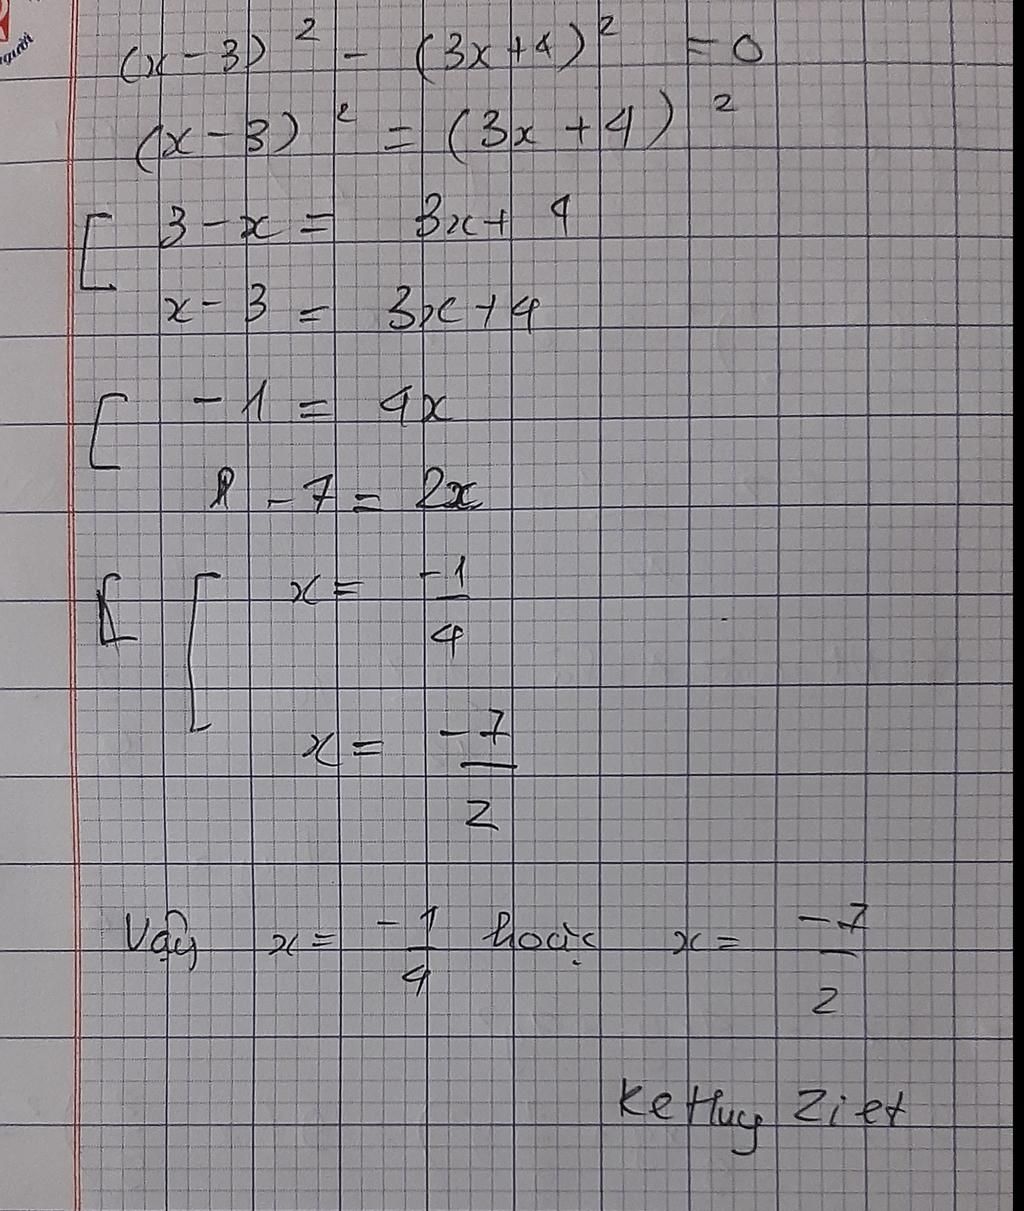 người
(x-3)² - (3x+4)² = 0
(x-3)² = (3x+4)²
[ 3-x = 3x+4
x-3 = 3x+4
[ -1 = 4x
-7 = 2x
[ x = -1/4
x = -7/2
Vậy x = -1/4 hoặc x = -7/2
Kethuy Ziet